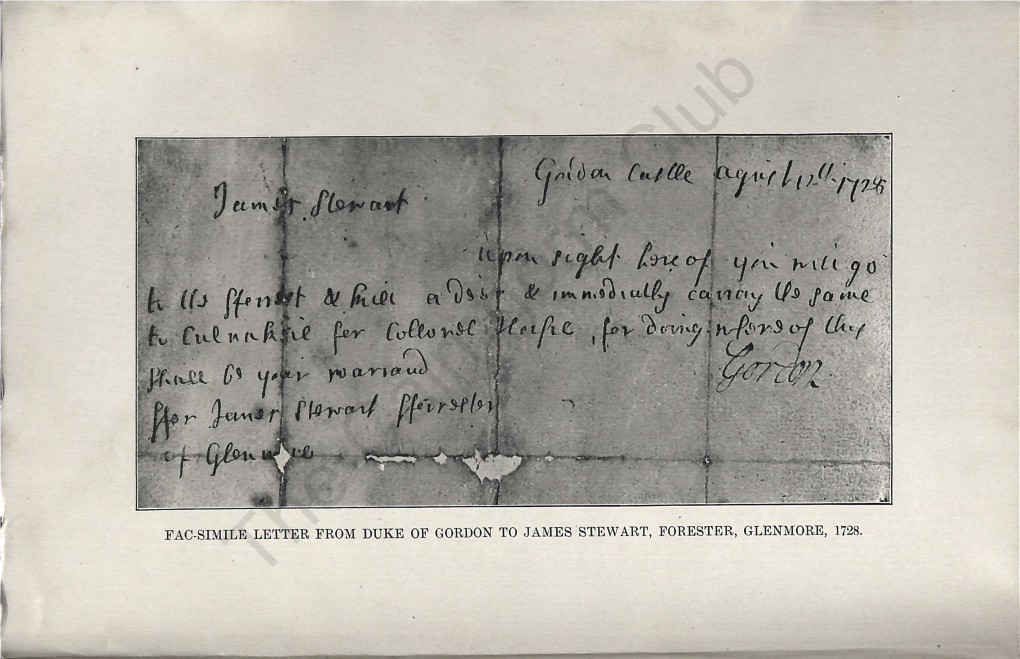 Gordon Castle agust 12th 1728
James Stewart
upon sight here of you will go
to the fforrest & kill a deer & immedially carray the same
to Culnakile for Collonel  for doing where of this
shall be your warrand
Gordon
ffor James Stewart fforrester
of Glenmore
FAC-SIMILE LETTER FROM DUKE OF GORDON TO JAMES STEWART, FORESTER, GLENMORE, 1728.
The Cairngorm Club